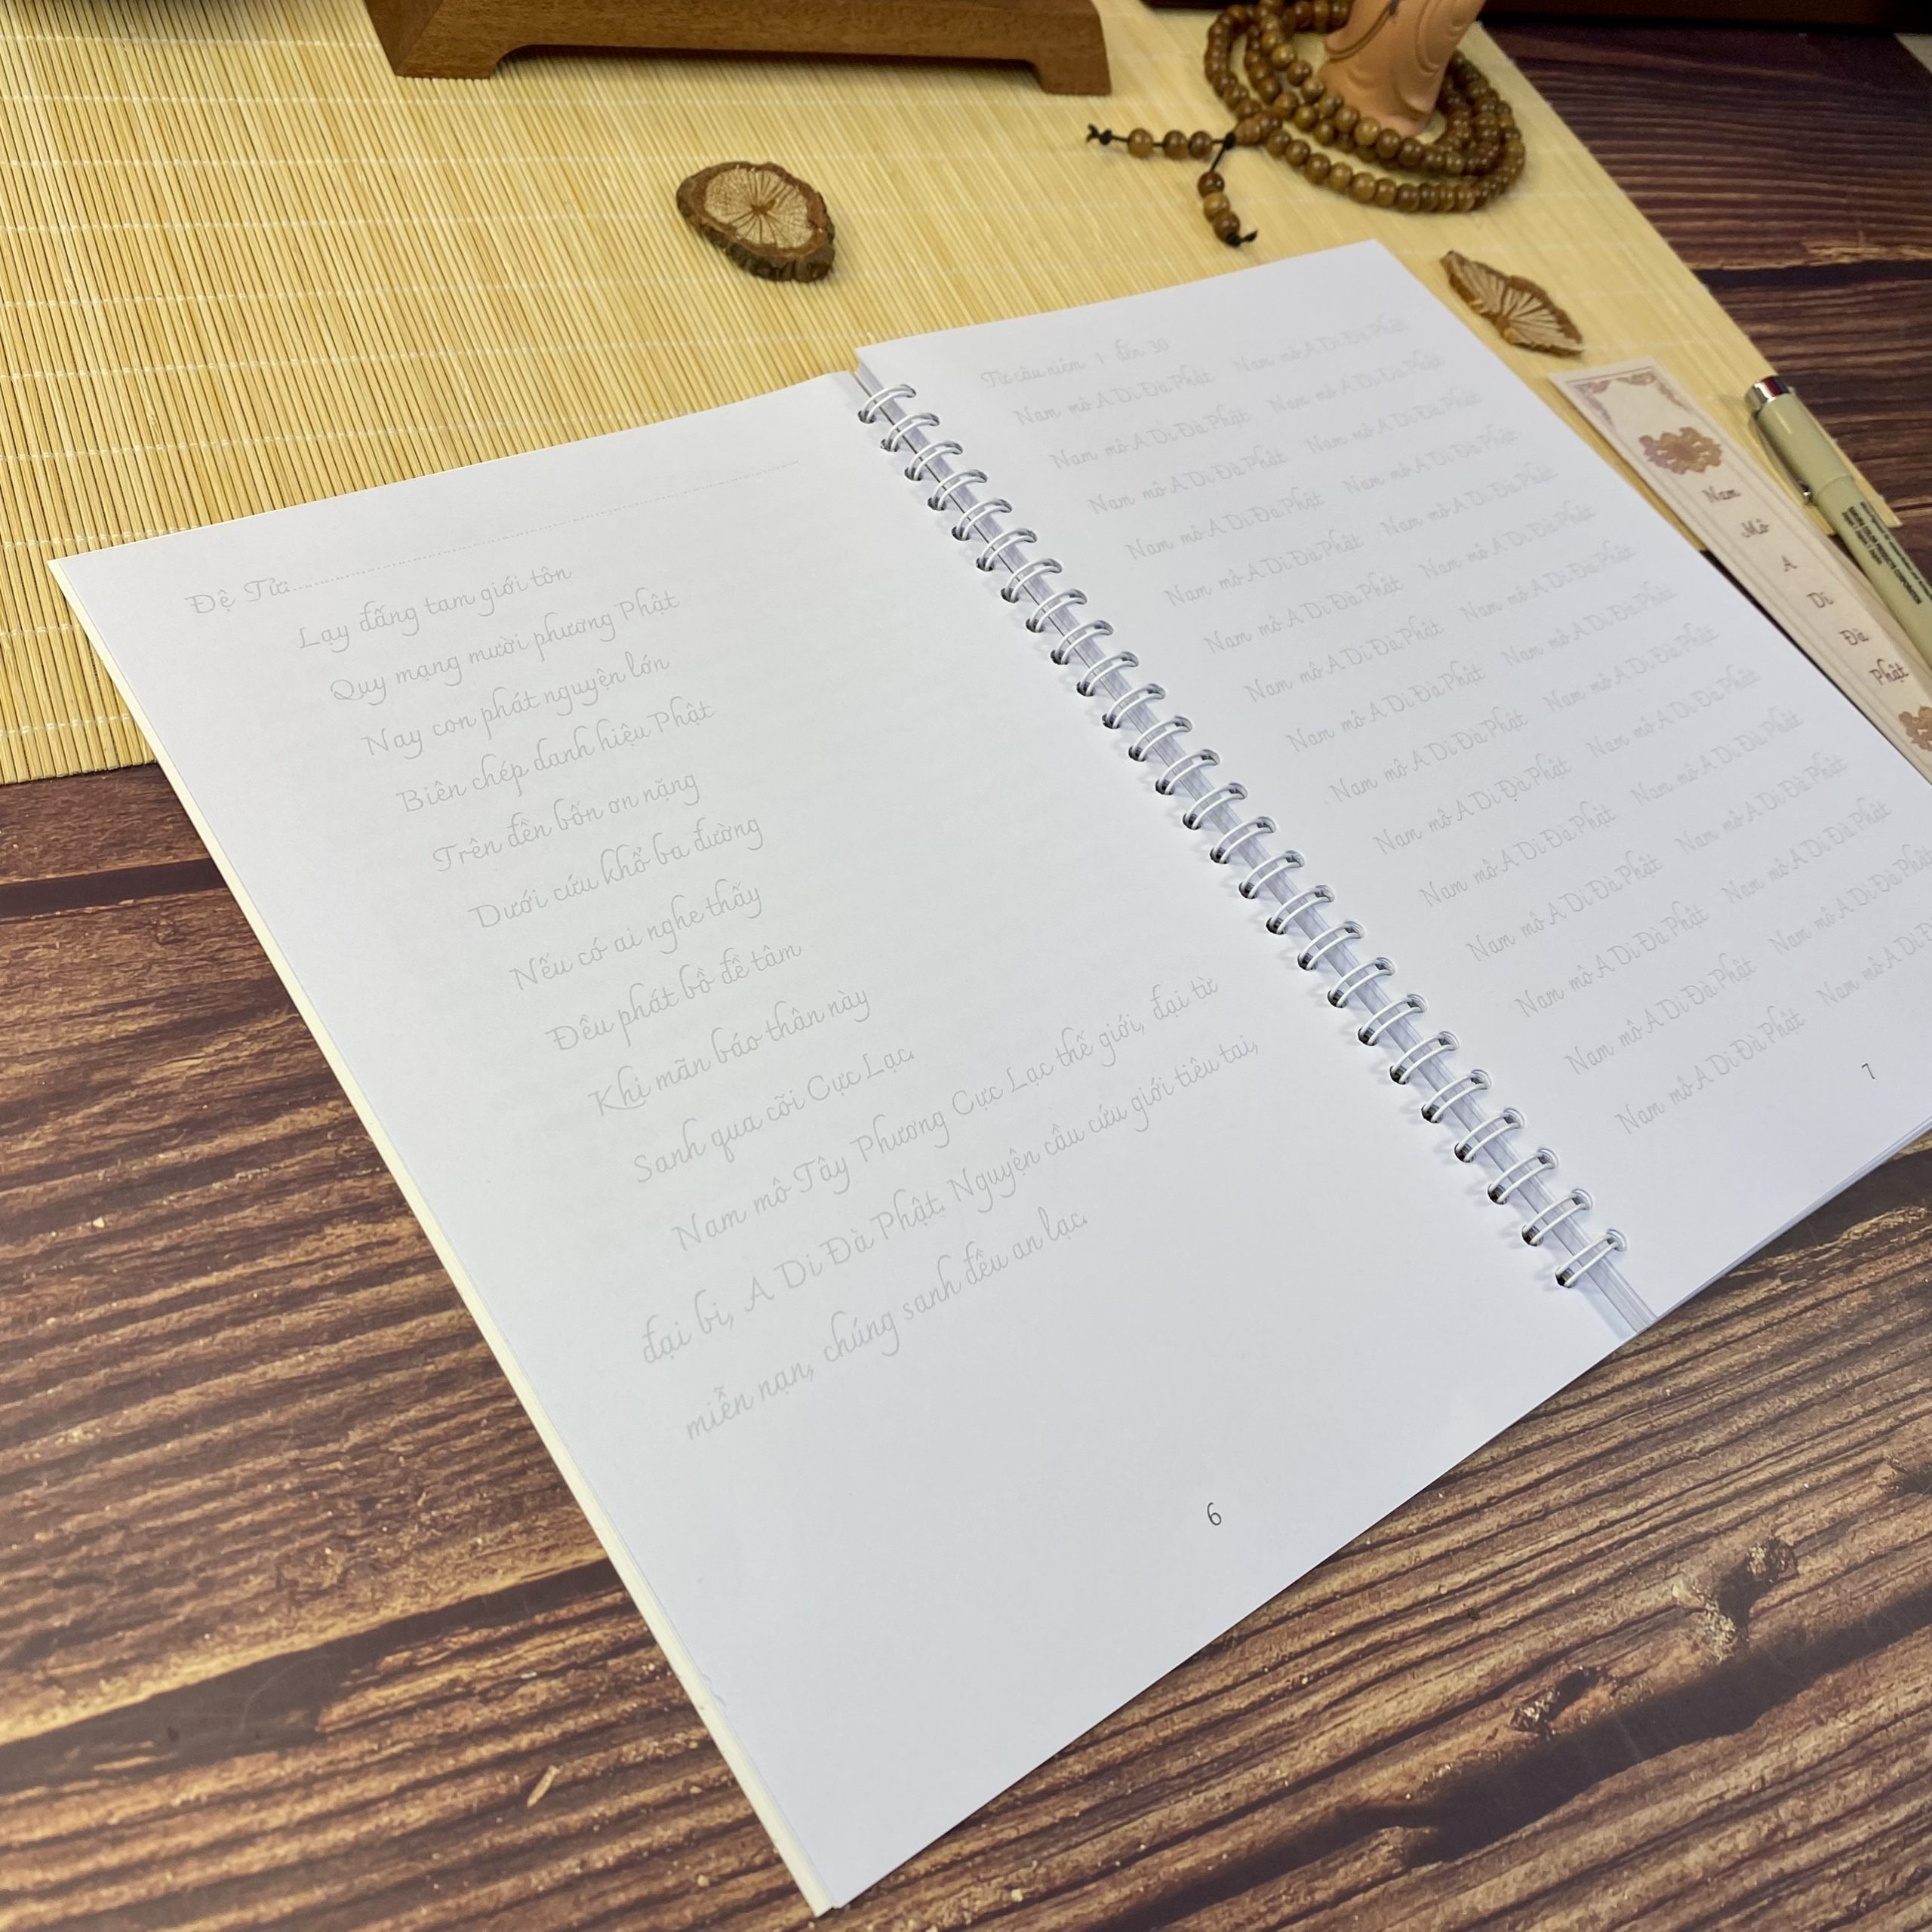 Đệ Tử:
Lạy đấng tam giới tôn
Quy mạng mười phương Phật
Nay con phát nguyện lớn
Biên chép danh hiệu Phật
Trên đền bốn ơn nặng
Dưới cứu khổ ba đường
Nếu có ai nghe thấy
Đều phát bồ đề tâm
Khi mãn báo thân này
Sanh qua cõi Cực Lạc.
Nam mô Tây Phương Cực Lạc thế giới, đại từ
đại bi, A Di Đà Phật. Nguyện cầu cứu giới tiêu tai,
miễn nạn, chúng sanh đều an lạc.
6
Từ câu niệm 1 đến 30
Nam mô A Di Đà Phật Nam mô A Di Đà Phật
Nam mô A Di Đà Phật Nam mô A Di Đà Phật
Nam mô A Di Đà Phật Nam mô A Di Đà Phật
Nam mô A Di Đà Phật Nam mô A Di Đà Phật
Nam mô A Di Đà Phật Nam mô A Di Đà Phật
Nam mô A Di Đà Phật Nam mô A Di Đà Phật
Nam mô A Di Đà Phật Nam mô A Di Đà Phật
Nam mô A Di Đà Phật Nam mô A Di Đà Phật
Nam mô A Di Đà Phật Nam mô A Di Đà Phật
Nam mô A Di Đà Phật Nam mô A Di Đà Phật
Nam mô A Di Đà Phật Nam mô A Di Đà Phật
Nam mô A Di Đà Phật Nam mô A Di Đà Phật
Nam mô A Di Đà Phật Nam mô A Di Đà Phật
Nam mô A Di Đà Phật Nam mô A Di Đà Phật
Nam mô A Di Đà Phật Nam mô A Di Đà
7
Nam
Mô
A
Di
Đà
Phật